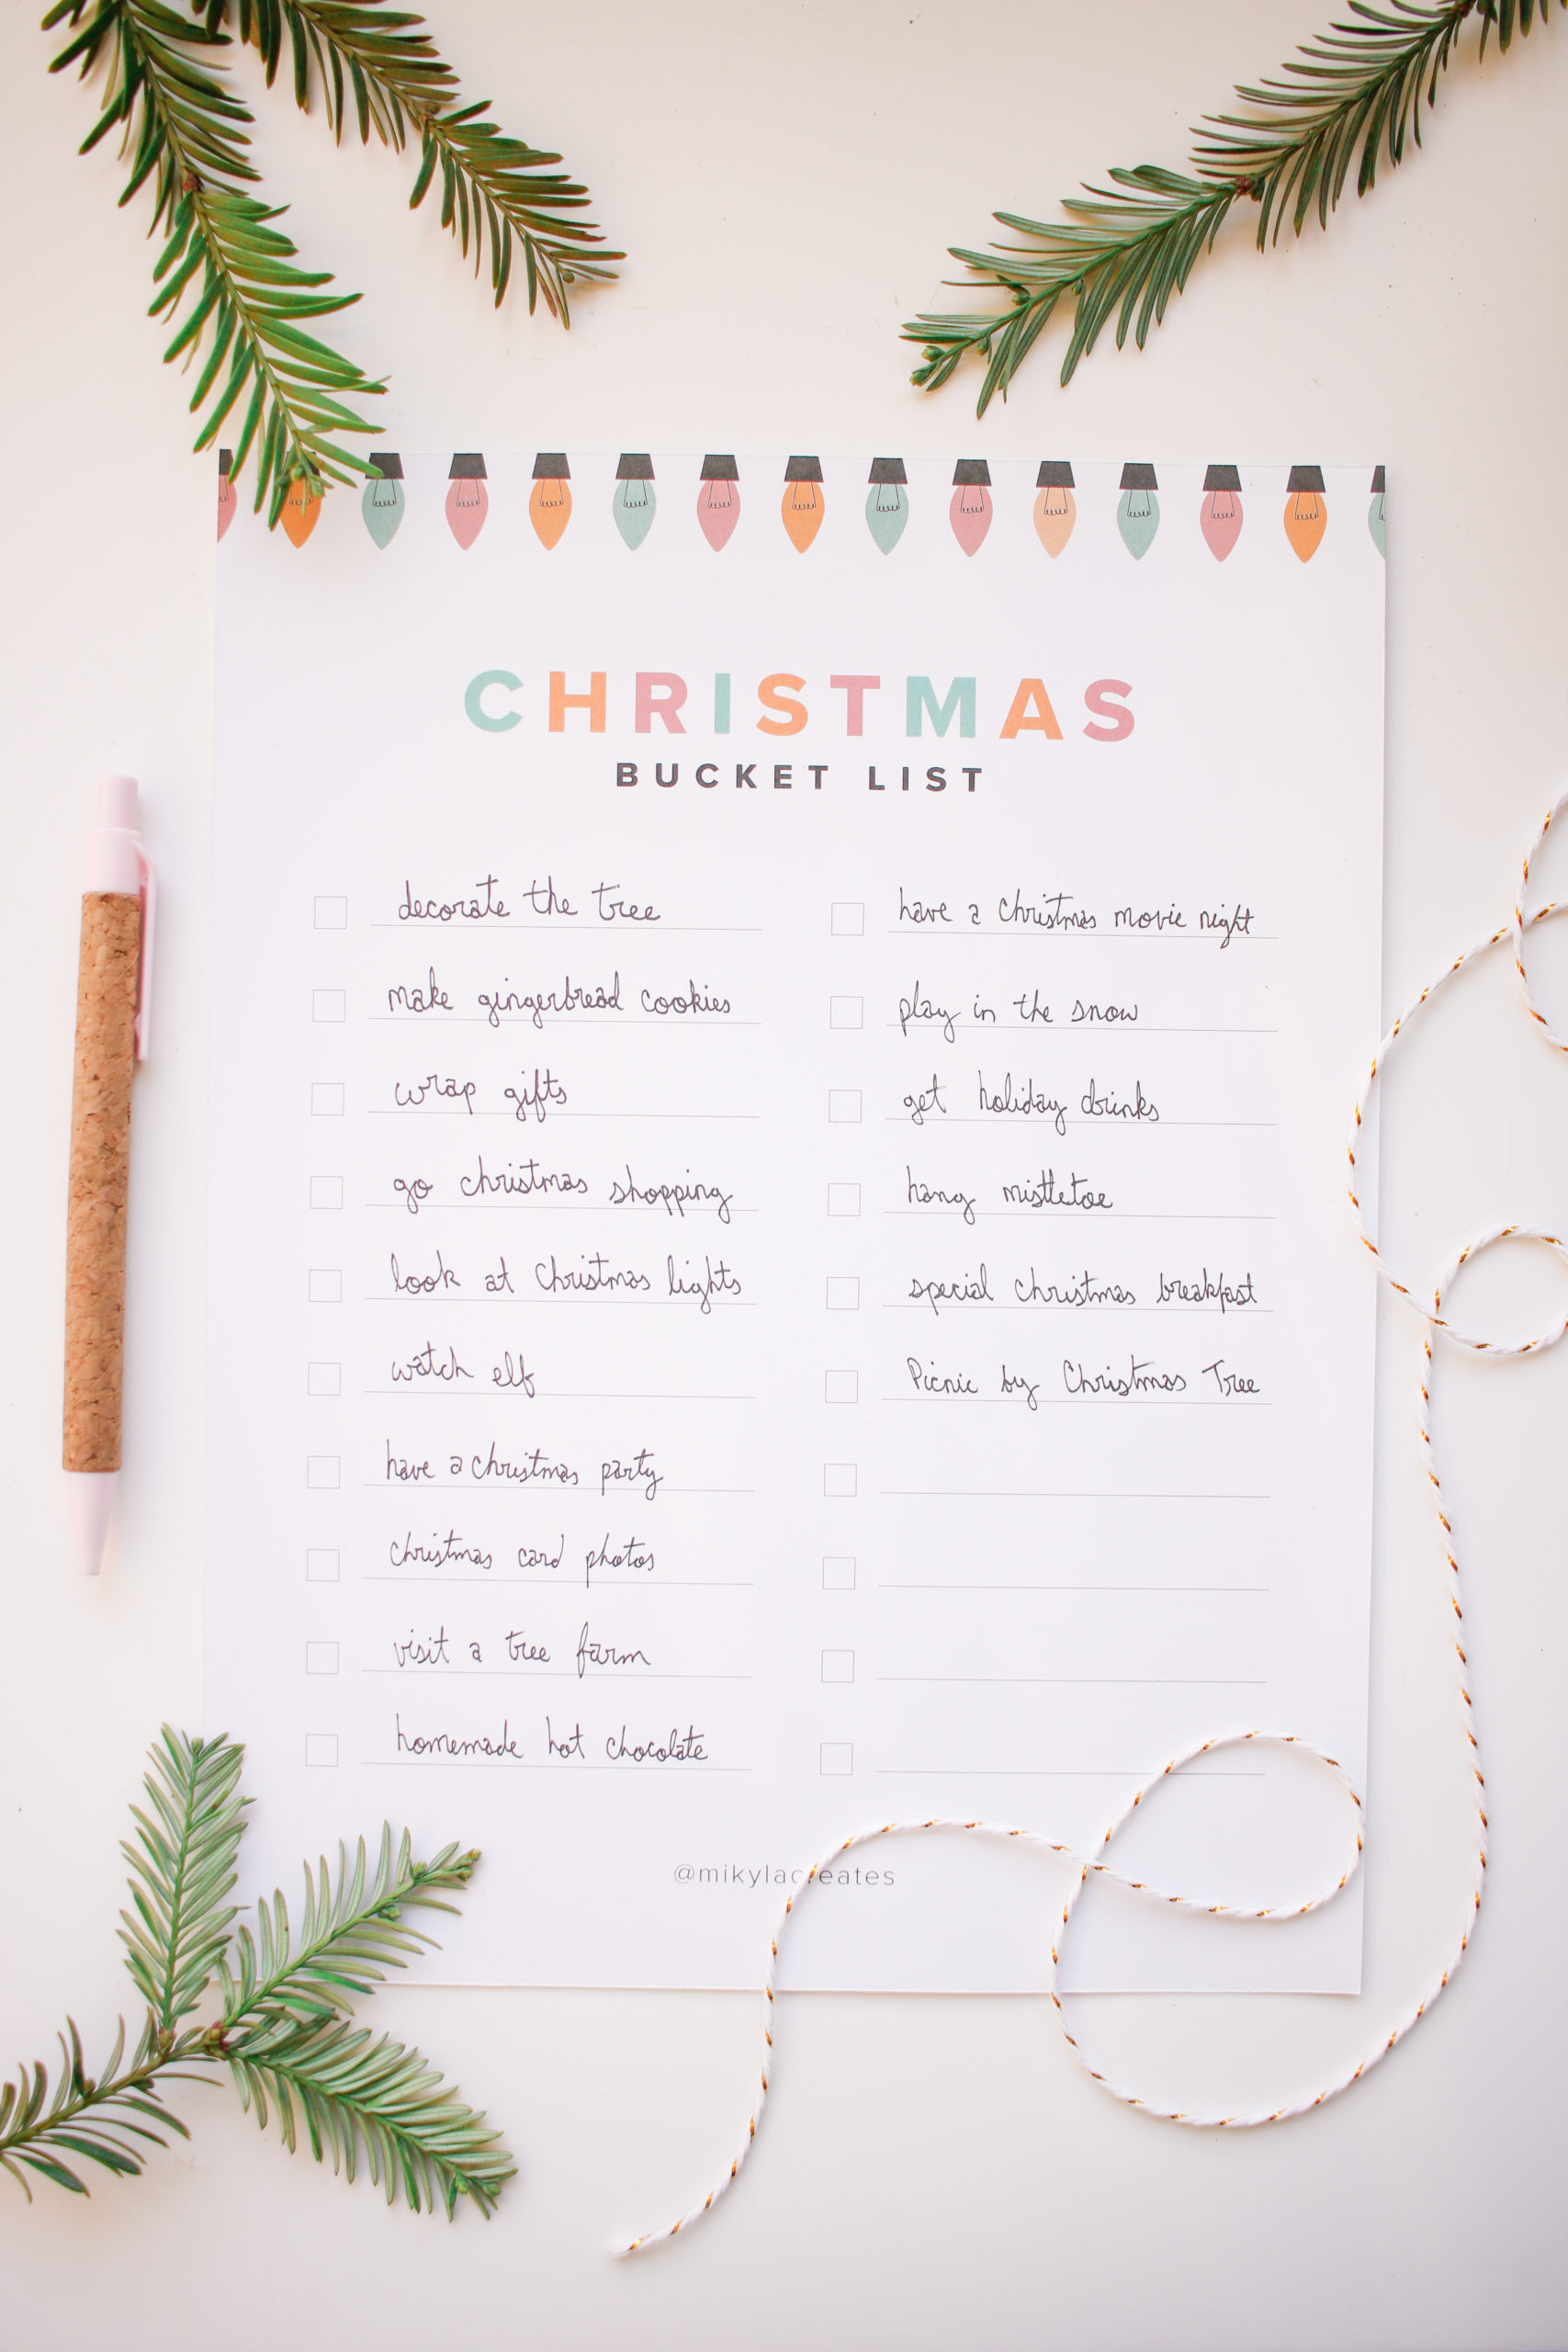 CHRISTMAS
BUCKET LIST
decorate the tree
make gingerbread cookies
wrap gifts
go christmas shopping
look at Christmas lights
watch elf
have a christmas party
christmas card photos
visit a tree farm
homemade hot chocolate
have a christmas movie night
play in the snow
get holiday drinks
hang mistletoe
special christmas breakfast
Picnic by Christmas Tree
@mikylacreates